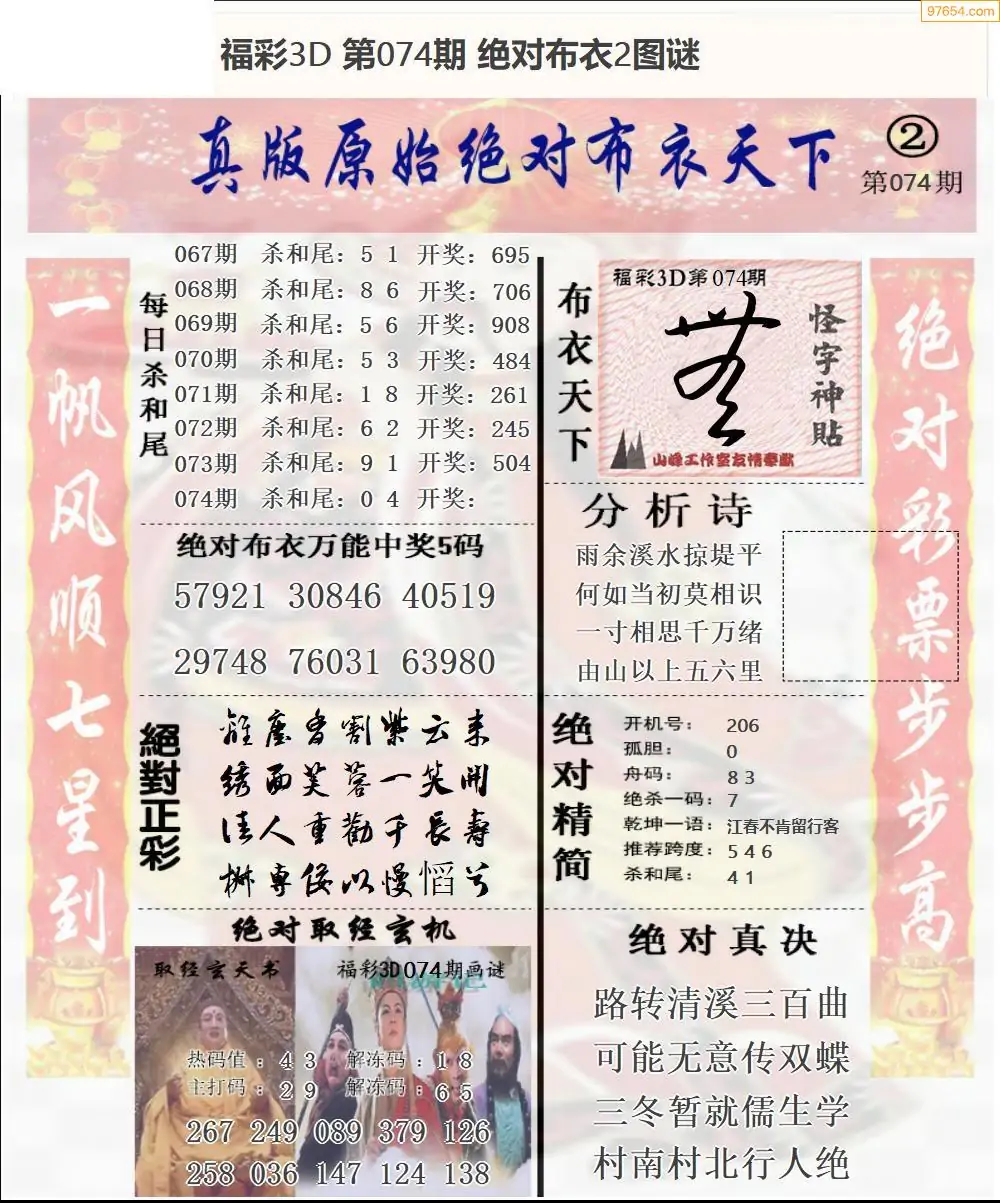 97654.com
福彩3D 第074期 绝对布衣2图谜
真版原始绝对布衣天下
②
第074期
一帆风顺七星到
每日杀和尾
067期 杀和尾：5 1 开奖：695
068期 杀和尾：8 6 开奖：706
069期 杀和尾：5 6 开奖：908
070期 杀和尾：5 3 开奖：484
071期 杀和尾：1 8 开奖：261
072期 杀和尾：6 2 开奖：245
073期 杀和尾：9 1 开奖：504
074期 杀和尾：0 4 开奖：
绝对布衣万能中奖5码
57921 30846 40519
29748 76031 63980
絕對正彩
绣面芙蓉一笑開
佳人重勸千長壽
绝对取经玄机
取经玄天书
福彩3D074期画谜
热码值：4 3 解冻码：1 8
主打码：2 9 解冻码：6 5
267 249 089 379 126
258 036 147 124 138
布衣天下
福彩3D第074期
怪字神貼
山峰工作室友情奉献
分析诗
雨余溪水掠堤平
何如当初莫相识
一寸相思千万绪
由山以上五六里
绝对精简
开机号：206
孤胆：0
舟码：8 3
绝杀一码：7
乾坤一语：江春不肯留行客
推荐跨度：5 4 6
杀和尾：4 1
绝对真决
路转清溪三百曲
可能无意传双蝶
三冬暂就儒生学
村南村北行人绝
绝对彩票步步高